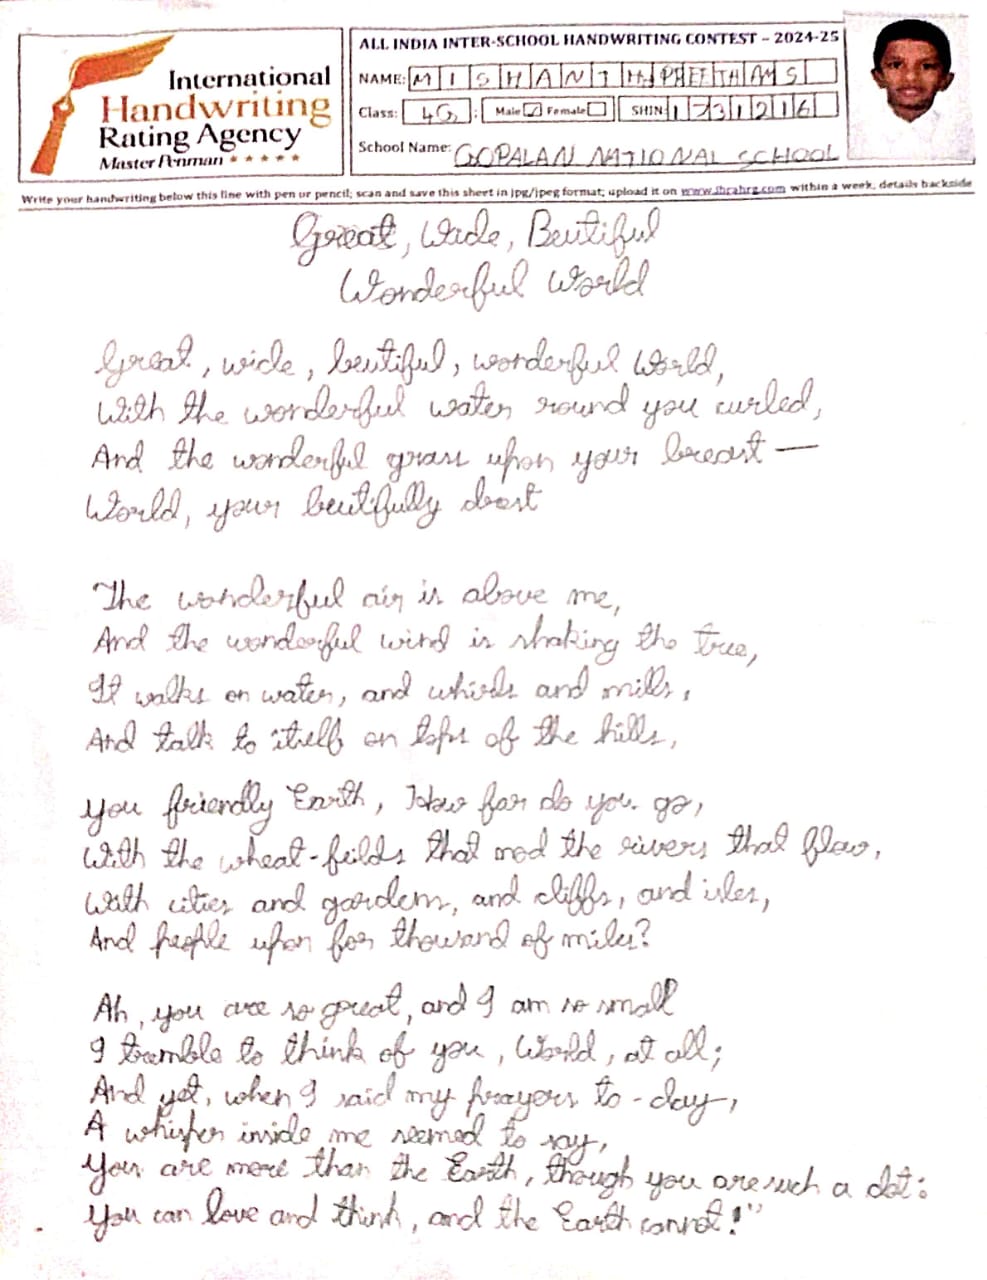 International
Handwriting
Rating Agency
Master Penman
ALL INDIA INTER-SCHOOL HANDWRITING CONTEST – 2024-25
NAME: MISHANTH PREETHAM S
Class: 4G Male ☑ Female ☐ SHIN: 1731216
School Name: GOPALAN NATIONAL SCHOOL
Write your handwriting below this line with pen or pencil; scan and save this sheet in jpg/jpeg format; upload it on www.ihrahrg.com within a week, details backside
Great, Wide, Beutiful
Wonderful World
Great, wide, beutiful, wonderful World,
With the wonderful water round you curled,
And the wonderful grass upon your breast —
World, your beutifully drest
The wonderful air is above me,
And the wonderful wind is shaking the true,
It walks on water, and whirls and mills,
And talk to itself on tops of the hills,
you friendly Earth, How far do you go,
With the wheat-feilds that nod the rivers that flow,
With cities and gardens, and cliffs, and isles,
And people upon for thousand of miles?
Ah, you are so great, and I am so small
I tramble to think of you, World, at all;
And yet, when I said my prayers to-day,
A whisper inside me seemed to say,
You are more than the Earth, though you are such a dot:
You can love and think, and the Earth cannot!"